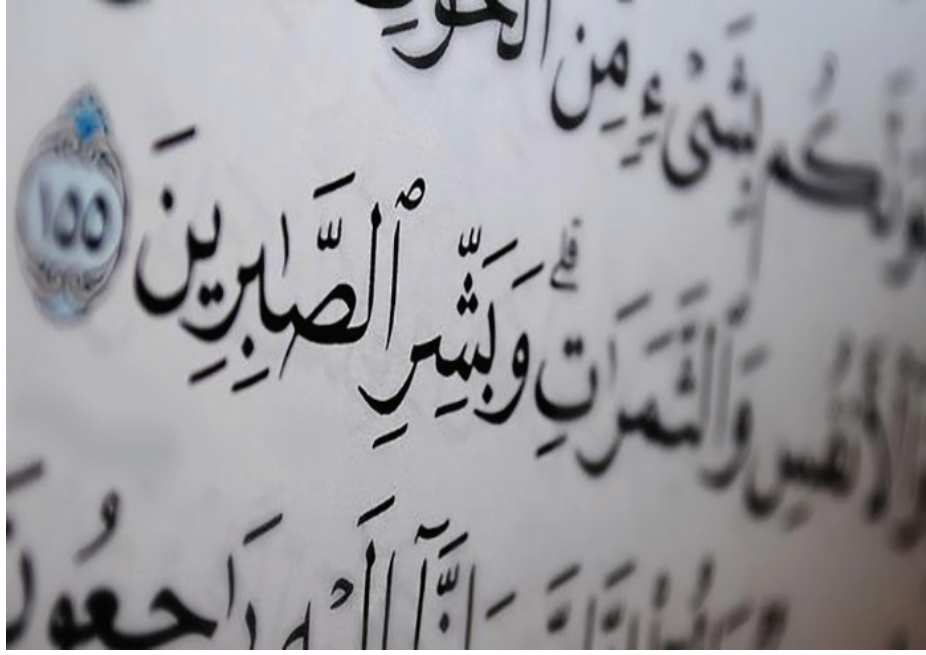 وَلَنَبْلُوَنَّكُم بِشَىْءٍ مِّنَ ٱلْخَوْفِ
وَٱلْأَنفُسِ وَٱلثَّمَرَٰتِ ۗ وَبَشِّرِ ٱلصَّٰبِرِينَ ١٥٥
إِنَّآ إِلَيْهِ رَٰجِعُونَ